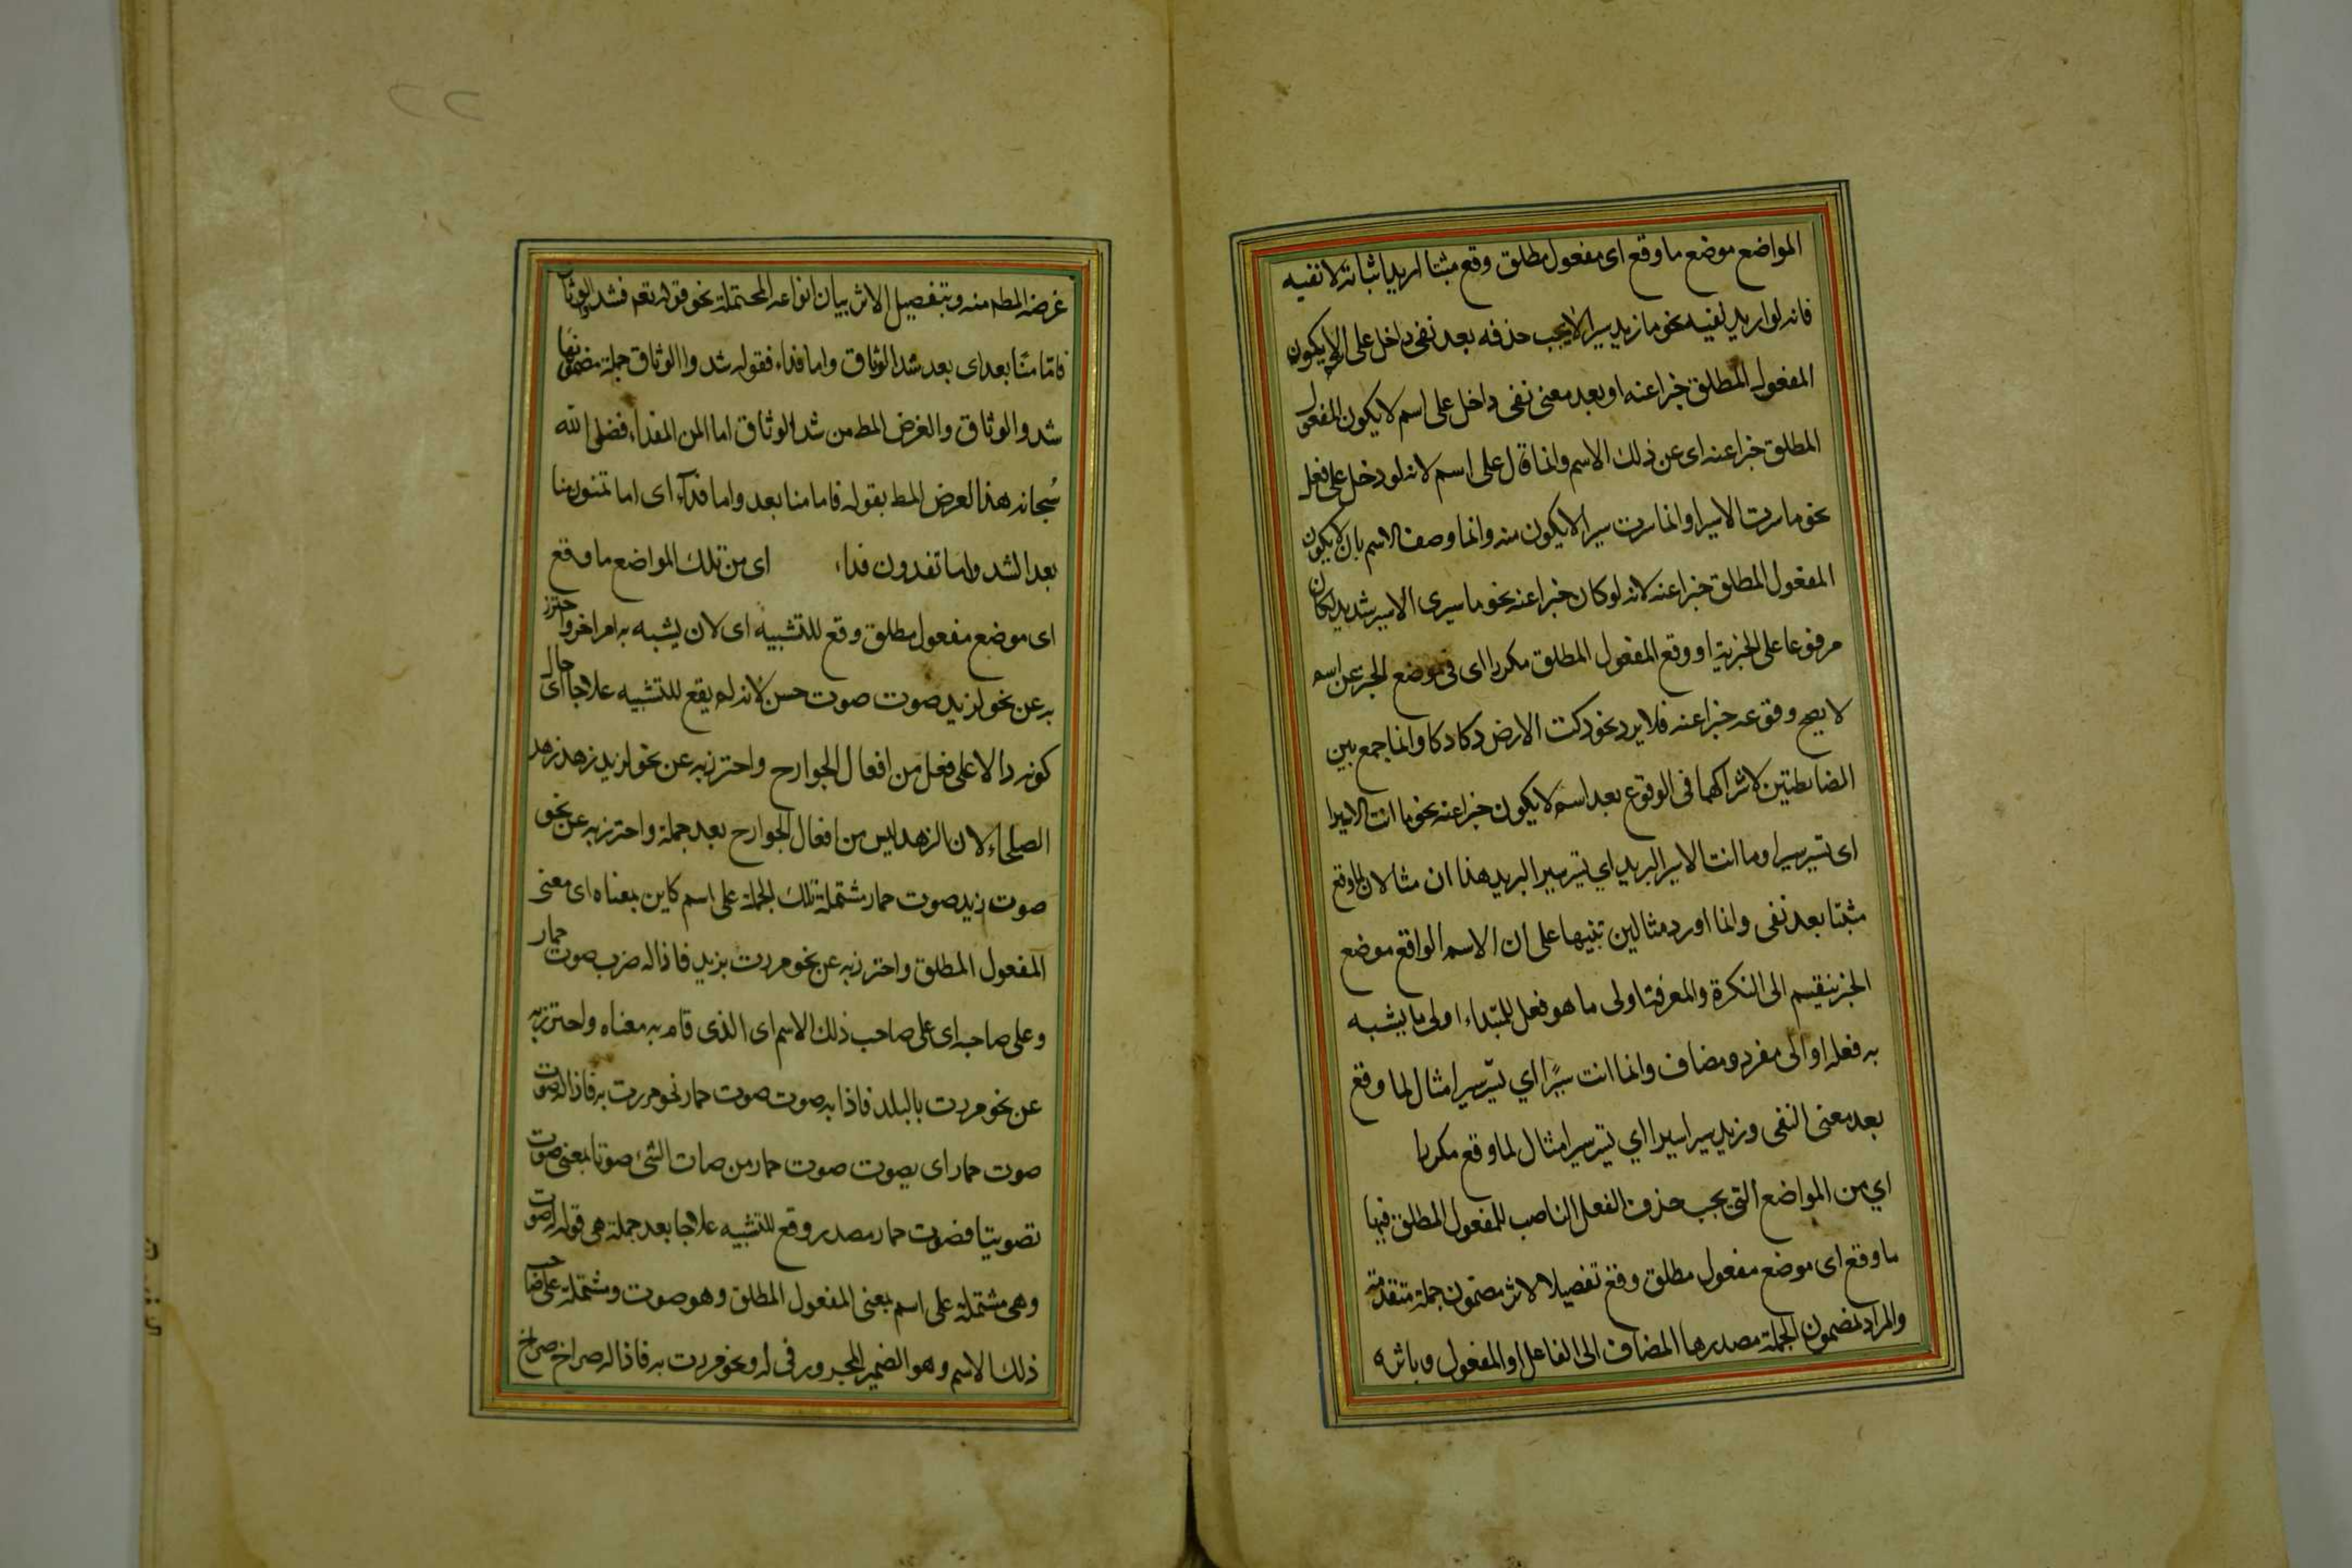 المواضع موضع ما وقع اى مفعول مطلق وقع مثبتا اريد اثباته لا نفيه
فانه لو اريد نفيه نحو ما زيد سيرا لا يجب حذفه بعد نفى داخل على اسم لا يكون
المفعول المطلق خبرا عنه او بعد معنى نفى داخل على اسم لا يكون المفعول
المطلق خبرا عنه اى عن ذلك الاسم وانما قال على اسم لانه لو دخل على فعل
نحو ما سرت الا سيرا وانما سرت سيرا لا يكون منه وانما وصف الاسم بان لا يكون
المفعول المطلق خبرا عنه لانه لو كان خبرا عنه نحو ما سيرى الا سير شديد لكان
مرفوعا على الخبرية او وقع المفعول المطلق مكررا اى فى موضع الخبر عن اسم
لا يصح وقوعه خبرا عنه فلا يرد نحو دكت الارض دكا دكا وانما جمع بين
الضابطتين لاشتراكهما فى الوقوع بعد اسم لا يكون خبرا عنه نحو ما انت الا سيرا
اى تسير سيرا وما انت الا سير البريد اي تسير سير البريد هذا ان مثالان لما وقع
مثبتا بعد نفى وانما اورد مثالين تنبيها على ان الاسم الواقع موضع
الخبر ينقسم الى النكرة والمعرفة اولى ما هو فعل للمبتداء اولى ما يشبه
به فعله او الى مفرد ومضاف وانما انت سيرًا اي تسير سيرا مثال لما وقع
بعد معنى النفى وزيد سيرا سيرا اي يسير سيرا مثال لما وقع مكررا
اي من المواضع التى يجب حذف الفعل الناصب للمفعول المطلق فيها
ما وقع اى موضع مفعول مطلق وقع تفصيلا لاثر مضمون جملة متقدمة
والمراد بمضمون الجملة مصدرها المضاف الى الفاعل او المفعول وباثره
غرضه المط منه وبتفصيل الاثر بيان انواعه المحتملة نحو قوله تعم فشدوا الوثاق
فامّا منّا بعد اى بعد شد الوثاق واما فداء فقوله شدوا الوثاق جملة مضمونها
شدوا الوثاق والغرض المط من شد الوثاق اما المن الفداء ففضل الله
سُبحانه هذا الغرض المط بقوله فاما منا بعد واما فداء اى اما تمنون منا
بعد الشد واما تفدون فداء اى من تلك المواضع ما وقع
اى موضع مفعول مطلق وقع للتشبيه اى لان يشبه به امر اخر واحترز
به عن نحو لزيد صوت صوت حسن لانه لم يقع للتشبيه علاجا اى حال
كونه دالا على فعل من افعال الجوارح واحترز به عن نحو لزيد زهد زهد
الصلحاء لان الزهد ليس من افعال الجوارح بعد جملة واحترز به عن نحو
صوت زيد صوت حمار مشتملة تلك الجملة على اسم كاين بمعناه اى معنى
المفعول المطلق واحترز به عن نحو مررت بزيد فاذا له ضرب صوت حمار
وعلى صاحبه اى على صاحب ذلك الاسم اى الذى قام به معناه واحترز به
عن نحو مررت بالبلد فاذا به صوت صوت حمار نحو مررت به فاذا له صوت
صوت حمار اى يصوت صوت حمار من صات الشئ صوتا بمعنى صوت
تصويتا فصوت حمار مصدر وقع للتشبيه علاجا بعد جملة هى قوله له صوت
وهى مشتملة على اسم بمعنى المفعول المطلق وهو صوت ومشتملة على صاحب
ذلك الاسم وهو الضمير المجرور فى له ونحو مررت به فاذا له صراخ صراخ